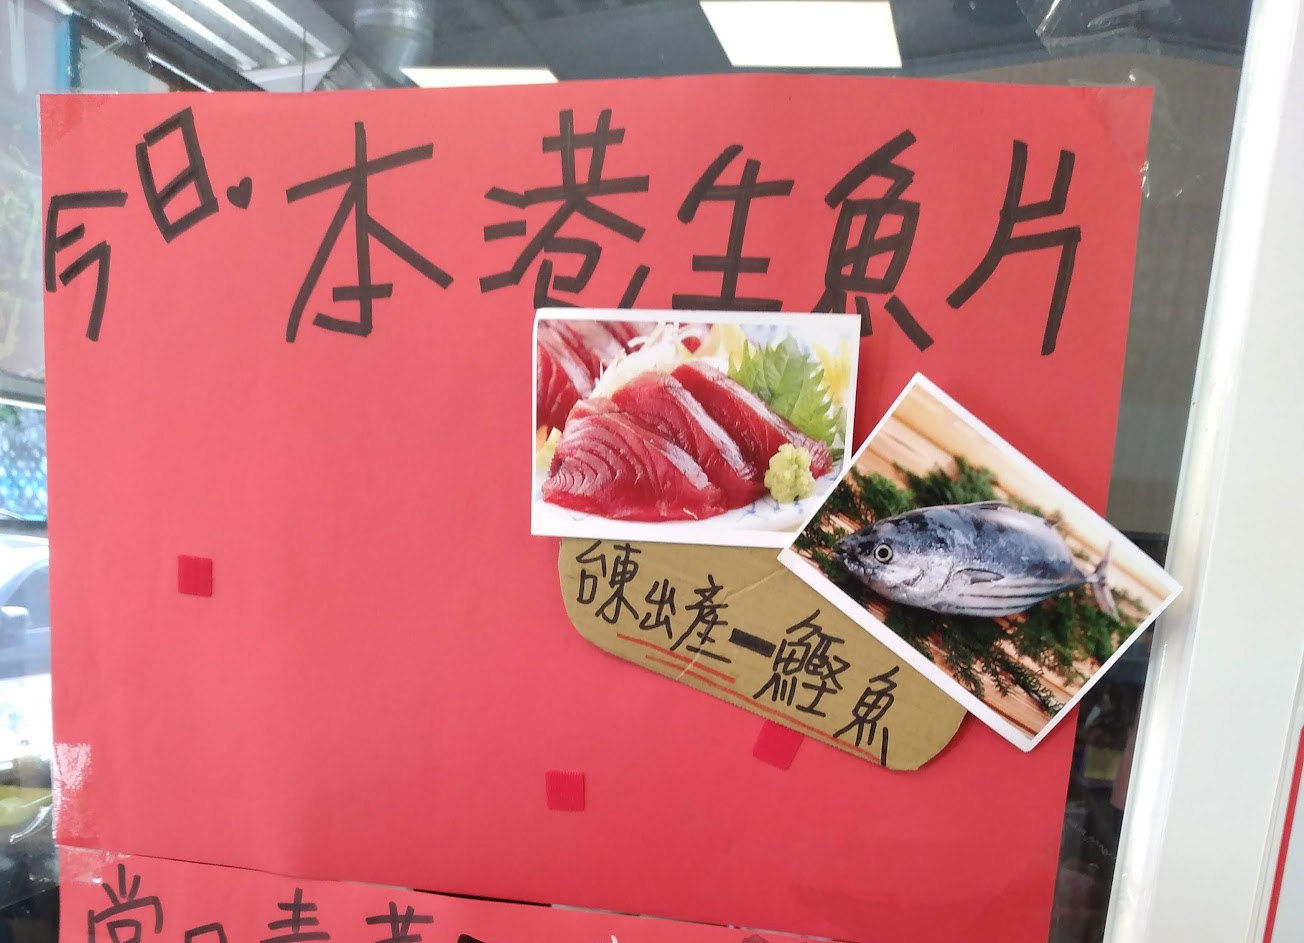 今日♥本港生魚片
台東出產-鰹魚
當日青菜